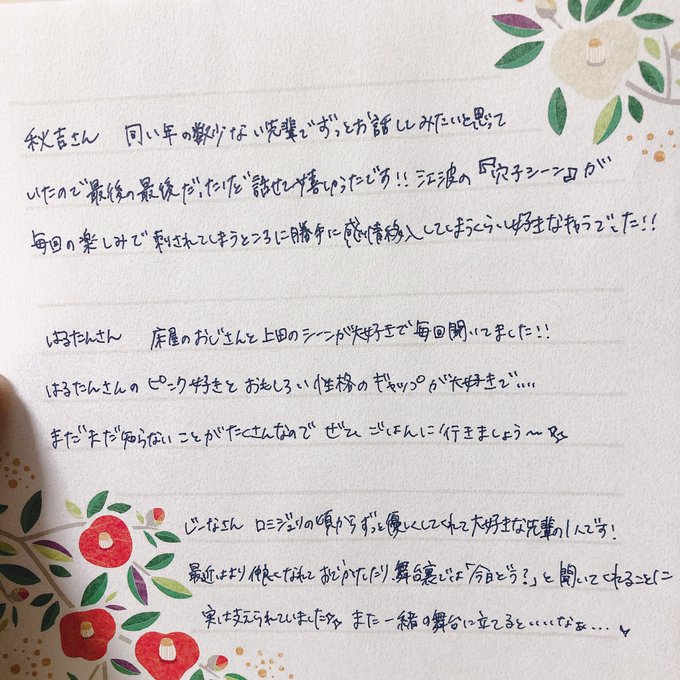 秋吉さん 同い年の数少ない先輩でずっとお話ししてみたいと思って
いたので最後の最後だったけど話せて嬉しかったです!! 江波の『穴子シーン』が
毎回の楽しみで刺されてしまうところに勝手に感情移入してしまうくらい好きなキャラでした!!
はるたんさん 床屋のおじさんと上田のシーンが大好きで毎回聞いてました!!
はるたんさんのピンク好きとおもしろい性格のギャップが大好きで....
まだまだ知らないことがたくさんなのでぜひごはんに行きましょう〜
じーなさん ロミジュリの頃からずっと優しくしてくれて大好きな先輩の1人です!
最近はより仲良くなれておでかけしたり、舞台裏では「今日どう?」と聞いてくれることに
実は支えられていました また一緒の舞台に立てるといいなぁ...